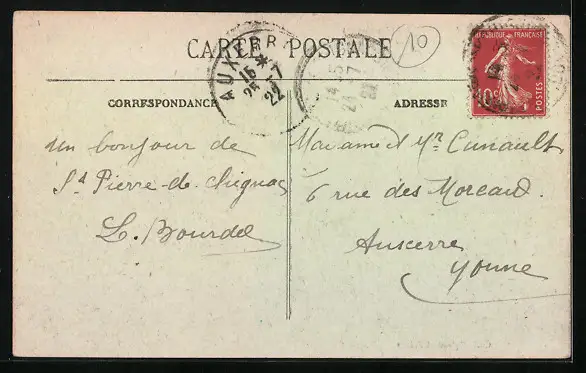 CARTE POSTALE
10
RÉPUBLIQUE FRANÇAISE
10c
POSTES
AUXERRE
15 *
25 -7
22
14
24 7
22
CORRESPONDANCE
ADRESSE
Un bonjour de
St Pierre-de-Chignac
L. Bourdel
Madame et Mr Cunault
6 rue des Moreaux
Auxerre
Yonne